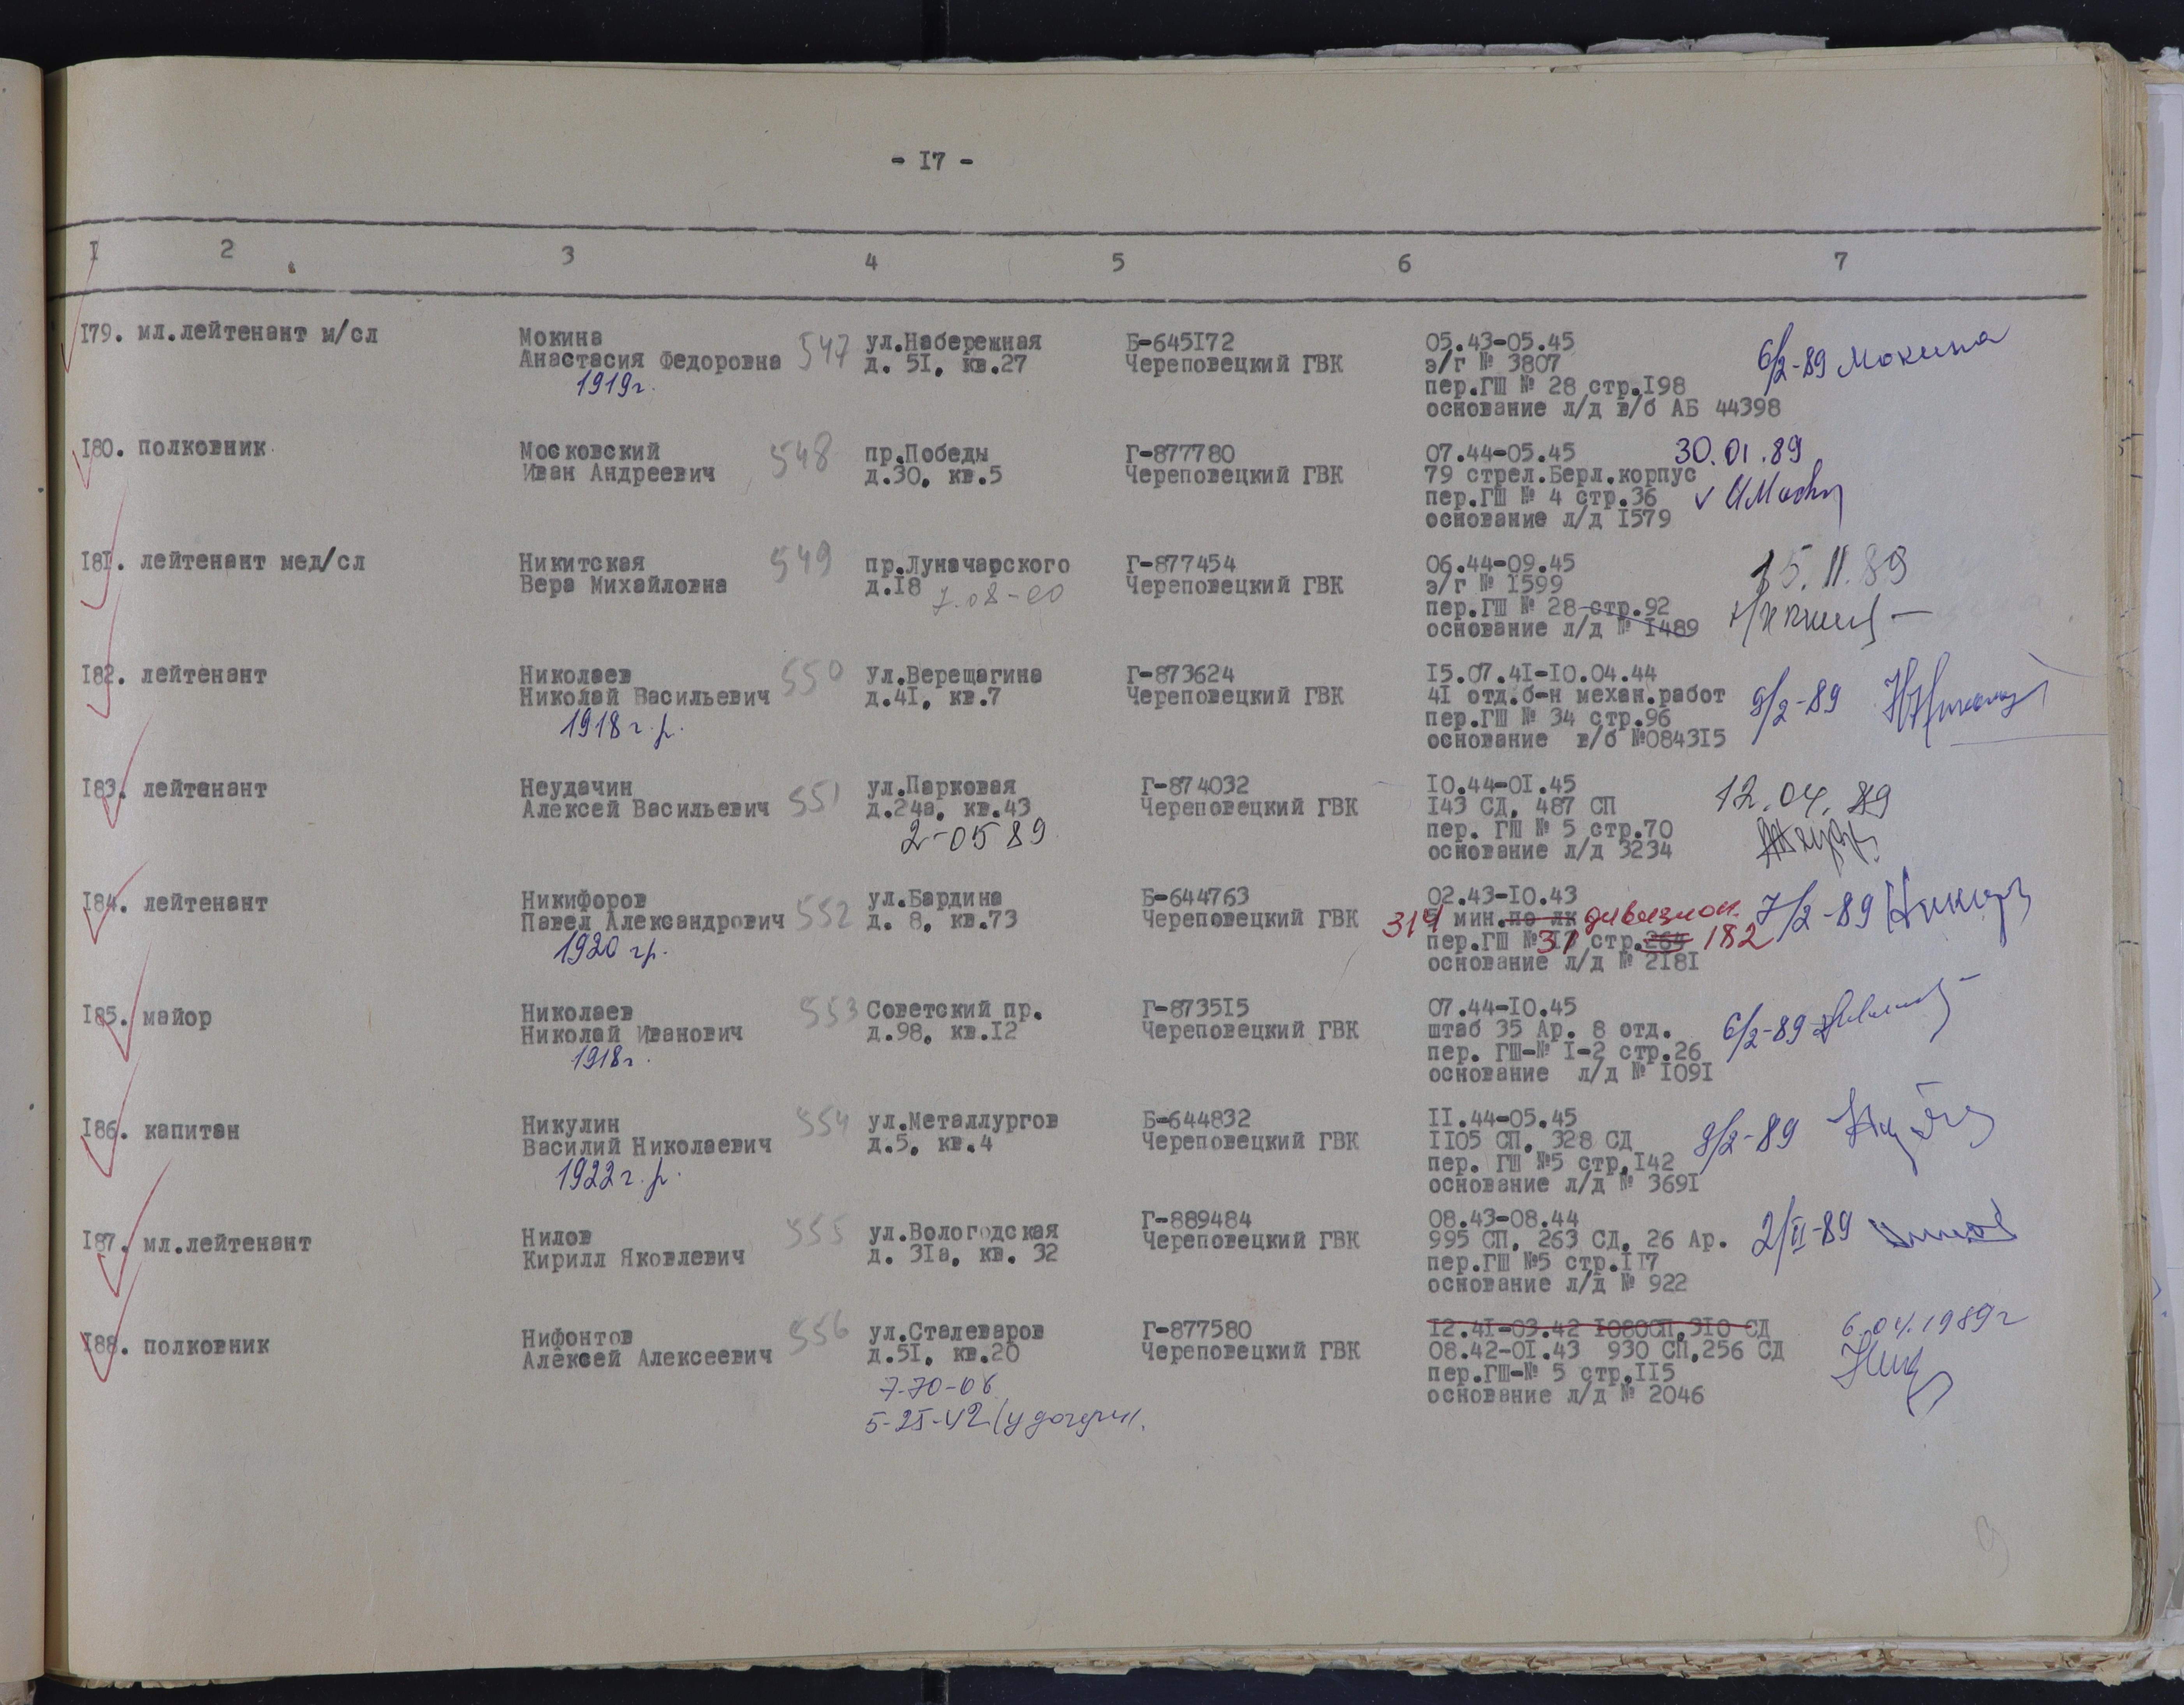 - I7 -
I 2 3 4 5 6 7
I79. мл.лейтенант м/сл Мокина 547 ул.Набережная Б-645I72 05.43-05.45 6/2-89 Мокина
Анастасия Федоровна д. 5I, кв.27 Череповецкий ГВК э/г № 3807
1919г. пер.ГШ № 28 стр.I98
основание л/д в/б АБ 44398
I80. полковник Московский 548 пр.Победы Г-877780 07.44-05.45 30.01.89
Иван Андреевич д.30, кв.5 Череповецкий ГВК 79 стрел.Берл.корпус
пер.ГШ № 4 стр.36
основание л/д I579
I8I. лейтенант мед/сл Никитская 549 пр.Луначарского Г-877454 06.44-09.45 15.II.89
Вера Михайловна д.I8 7-08-20 Череповецкий ГВК э/г № I599
пер.ГШ № 28 стр.92
основание л/д № I489
I82. лейтенант Николаев 550 Ул.Верещагина Г-873624 I5.07.4I-I0.04.44
Николай Васильевич д.4I, кв.7 Череповецкий ГВК 4I отд.б-н механ.работ 9/2-89
1918 г.р. пер.ГШ № 34 стр.96
основание в/б №0843I5
I83. лейтенант Неудачин 551 ул.Парковая Г-874032 I0.44-0I.45 12.04.89
Алексей Васильевич д.24а, кв.43 Череповецкий ГВК I43 СД, 487 СП
2-05 89 пер. ГШ № 5 стр.70
основание л/д 3234
I84. лейтенант Никифоров 552 ул.Бардина Б-644763 02.43-I0.43 7/2-89
Павел Александрович д. 8, кв.73 Череповецкий ГВК 314 мин.по лк дивизион
1920 гр. пер.ГШ № 31 стр.264 182
основание л/д № 2I8I
I85. майор Николаев 553 Советский пр. Г-8735I5 07.44-I0.45
Николай Иванович д.98, кв.I2 Череповецкий ГВК штаб 35 Ар. 8 отд. 6/2-89
1918г. пер. ГШ-№ I-2 стр.26
основание л/д № I09I
I86. капитан Никулин 554 ул.Металлургов Б-644832 II.44-05.45
Василий Николаевич д.5, кв.4 Череповецкий ГВК II05 СП, 328 СД 9/2-89
1922 г.р. пер. ГШ №5 стр.I42
основание л/д № 369I
I87. мл.лейтенант Нилов 555 ул.Вологодская Г-889484 08.43-08.44
Кирилл Яковлевич д. 3Iа, кв. 32 Череповецкий ГВК 995 СП, 263 СД, 26 Ар. 2/II-89
пер.ГШ №5 стр.II7
основание л/д № 922
I88. полковник Нифонтов 556 ул.Сталеваров Г-877580 I2.4I-03.42 I080СП,3I0 СД 6.04.1989г
Алексей Алексеевич д.5I, кв.20 Череповецкий ГВК 08.42-0I.43 930 СП,256 СД
7-70-06 пер.ГШ-№ 5 стр.II5
5-25-42 (у дочери). основание л/д № 2046